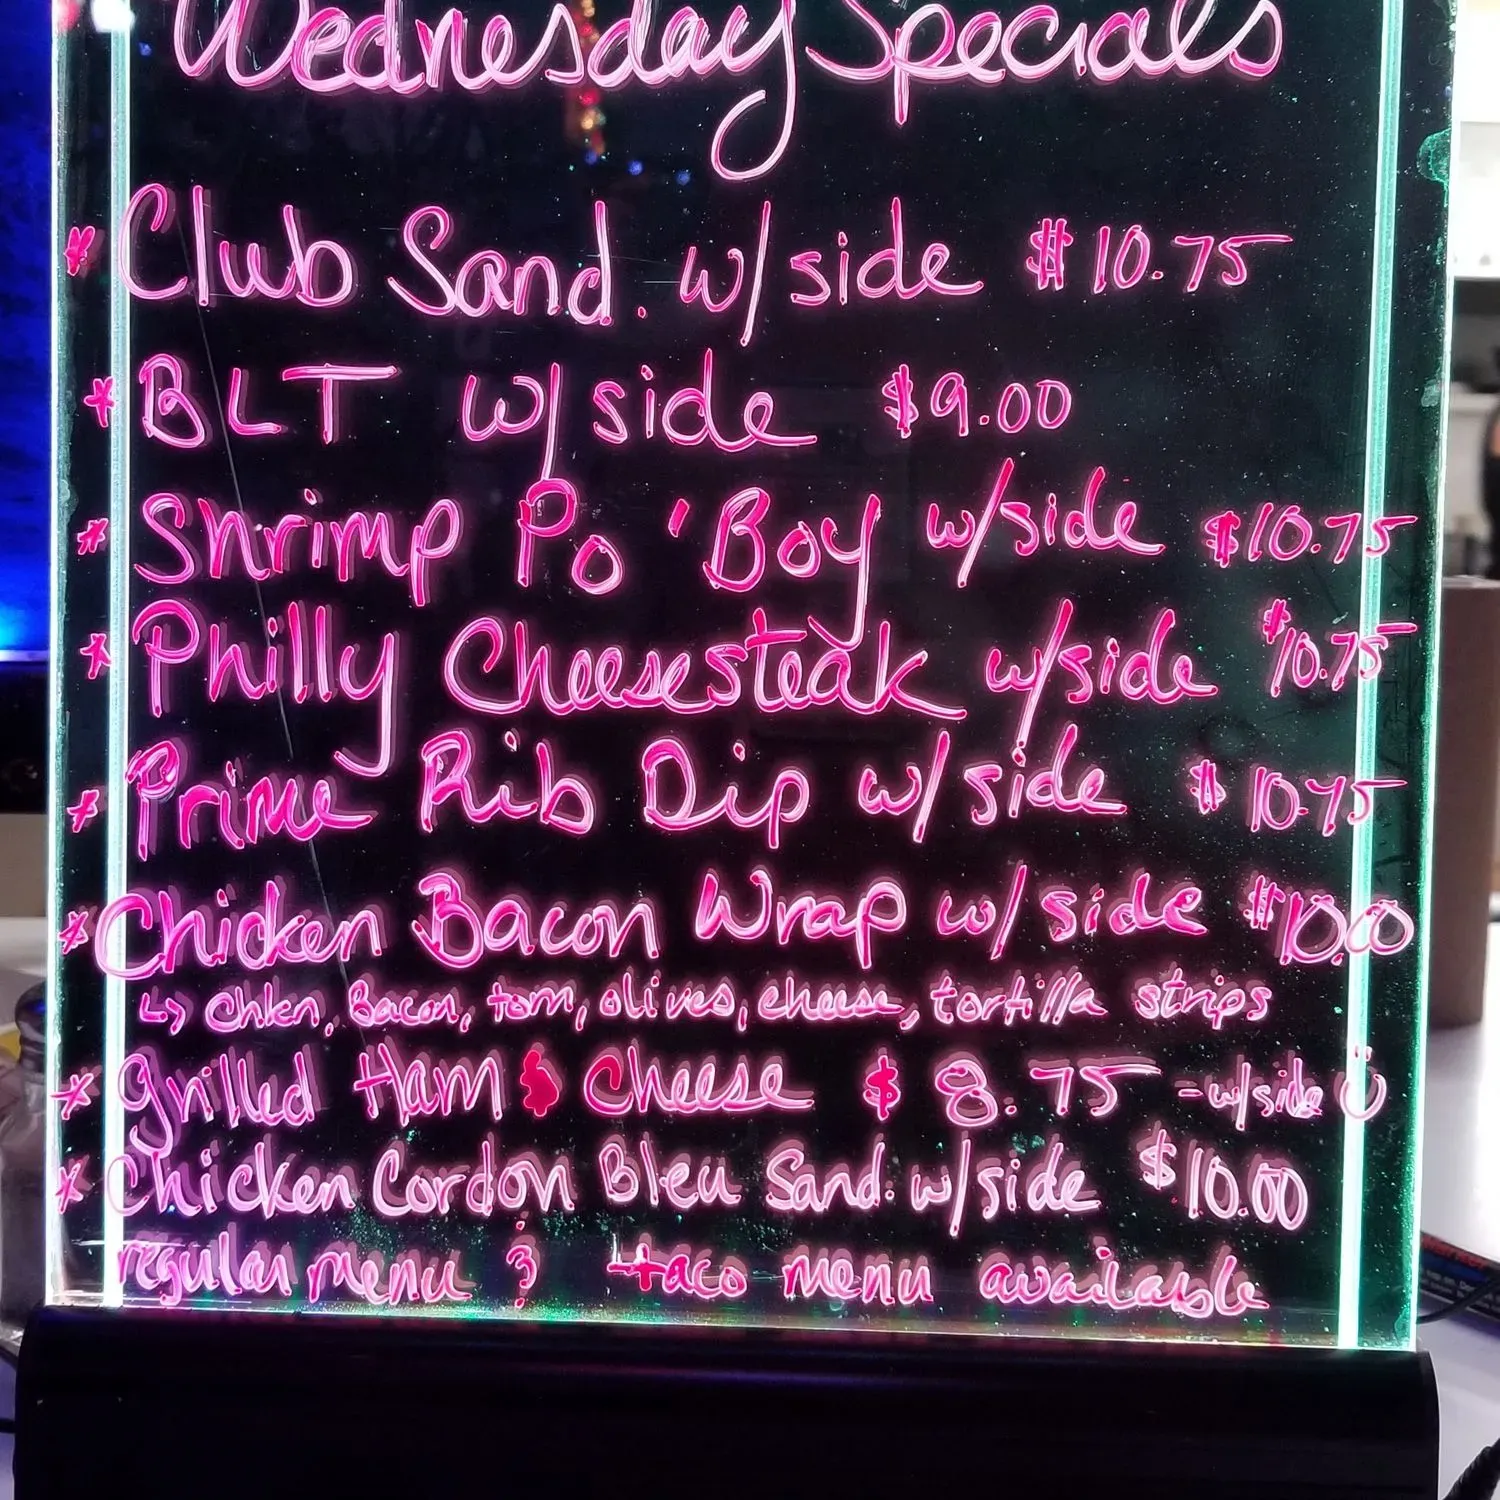 Wednesday Specials
* Club Sand. w/side $10.75
* BLT w/side $9.00
* Shrimp Po 'Boy w/side $10.75
* Philly Cheesesteak w/side $10.75
* Prime Rib Dip w/side $10.75
* Chicken Bacon Wrap w/side $10.00
↳ chkn, Bacon, tom, olives, cheese, tortilla strips
* Grilled Ham & Cheese $8.75 - w/side ☺
* Chicken Cordon Bleu Sand. w/side $10.00
regular menu & taco menu available